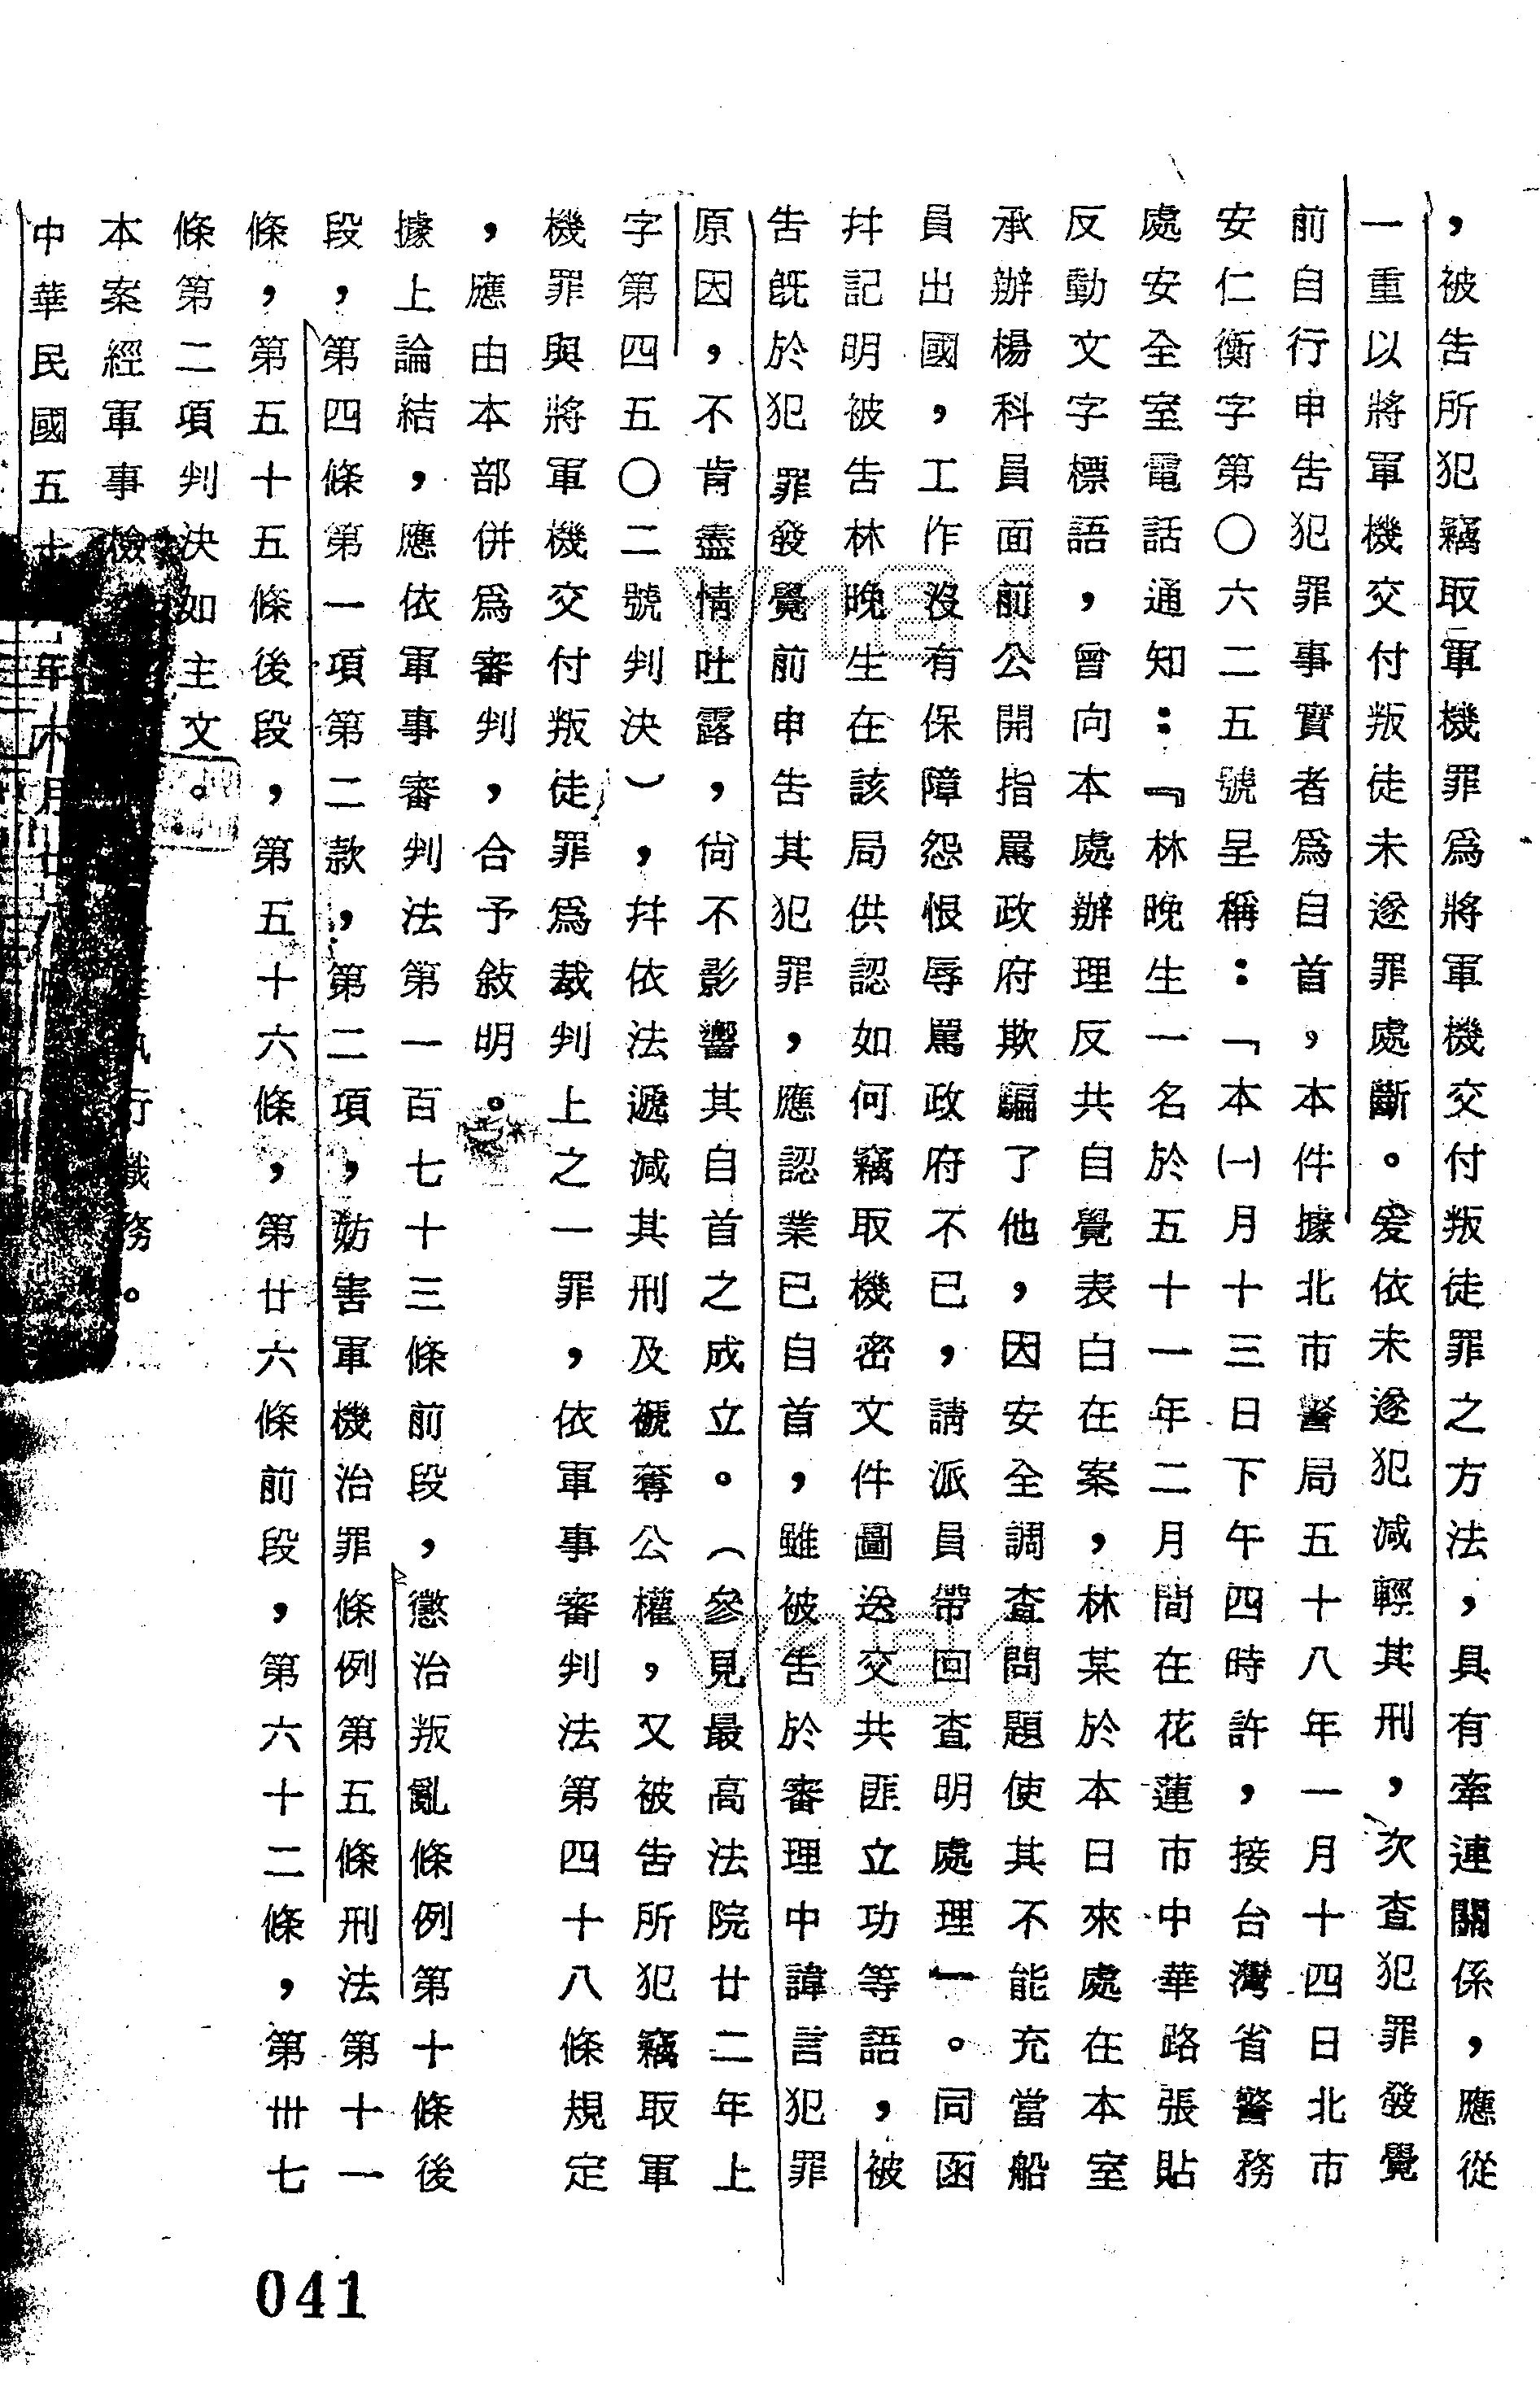 ，被告所犯竊取軍機罪爲將軍機交付叛徒罪之方法，具有牽連關係，應從
一重以將軍機交付叛徒未遂罪處斷。爰依未遂犯減輕其刑，次查犯罪發覺
前自行申告犯罪事實者爲自首，本件據北市警局五十八年一月十四日北市
安仁衡字第〇六二五號呈稱：「本㈠月十三日下午四時許，接台灣省警務
處安全室電話通知：『林晚生一名於五十一年二月間在花蓮市中華路張貼
反動文字標語，曾向本處辦理反共自覺表白在案，林某於本日來處在本室
承辦楊科員面前公開指罵政府欺騙了他，因安全調查問題使其不能充當船
員出國，工作沒有保障怨恨辱罵政府不已，請派員帶回查明處理」。同函
幷記明被告林晚生在該局供認如何竊取機密文件圖送交共匪立功等語，被
告既於犯罪發覺前申告其犯罪，應認業已自首，雖被告於審理中諱言犯罪
原因，不肯盡情吐露，尙不影響其自首之成立。（參見最高法院廿二年上
字第四五〇二號判決），幷依法遞減其刑及褫奪公權，又被告所犯竊取軍
機罪與將軍機交付叛徒罪爲裁判上之一罪，依軍事審判法第四十八條規定
，應由本部併爲審判，合予敍明。
據上論結，應依軍事審判法第一百七十三條前段，懲治叛亂條例第十條後
段，第四條第一項第二款，第二項，妨害軍機治罪條例第五條刑法第十一
條，第五十五條後段，第五十六條，第廿六條前段，第六十二條，第卅七
條第二項判決如主文。
本案經軍事檢行職務。
中華民國五十年月廿
041
V131
V131